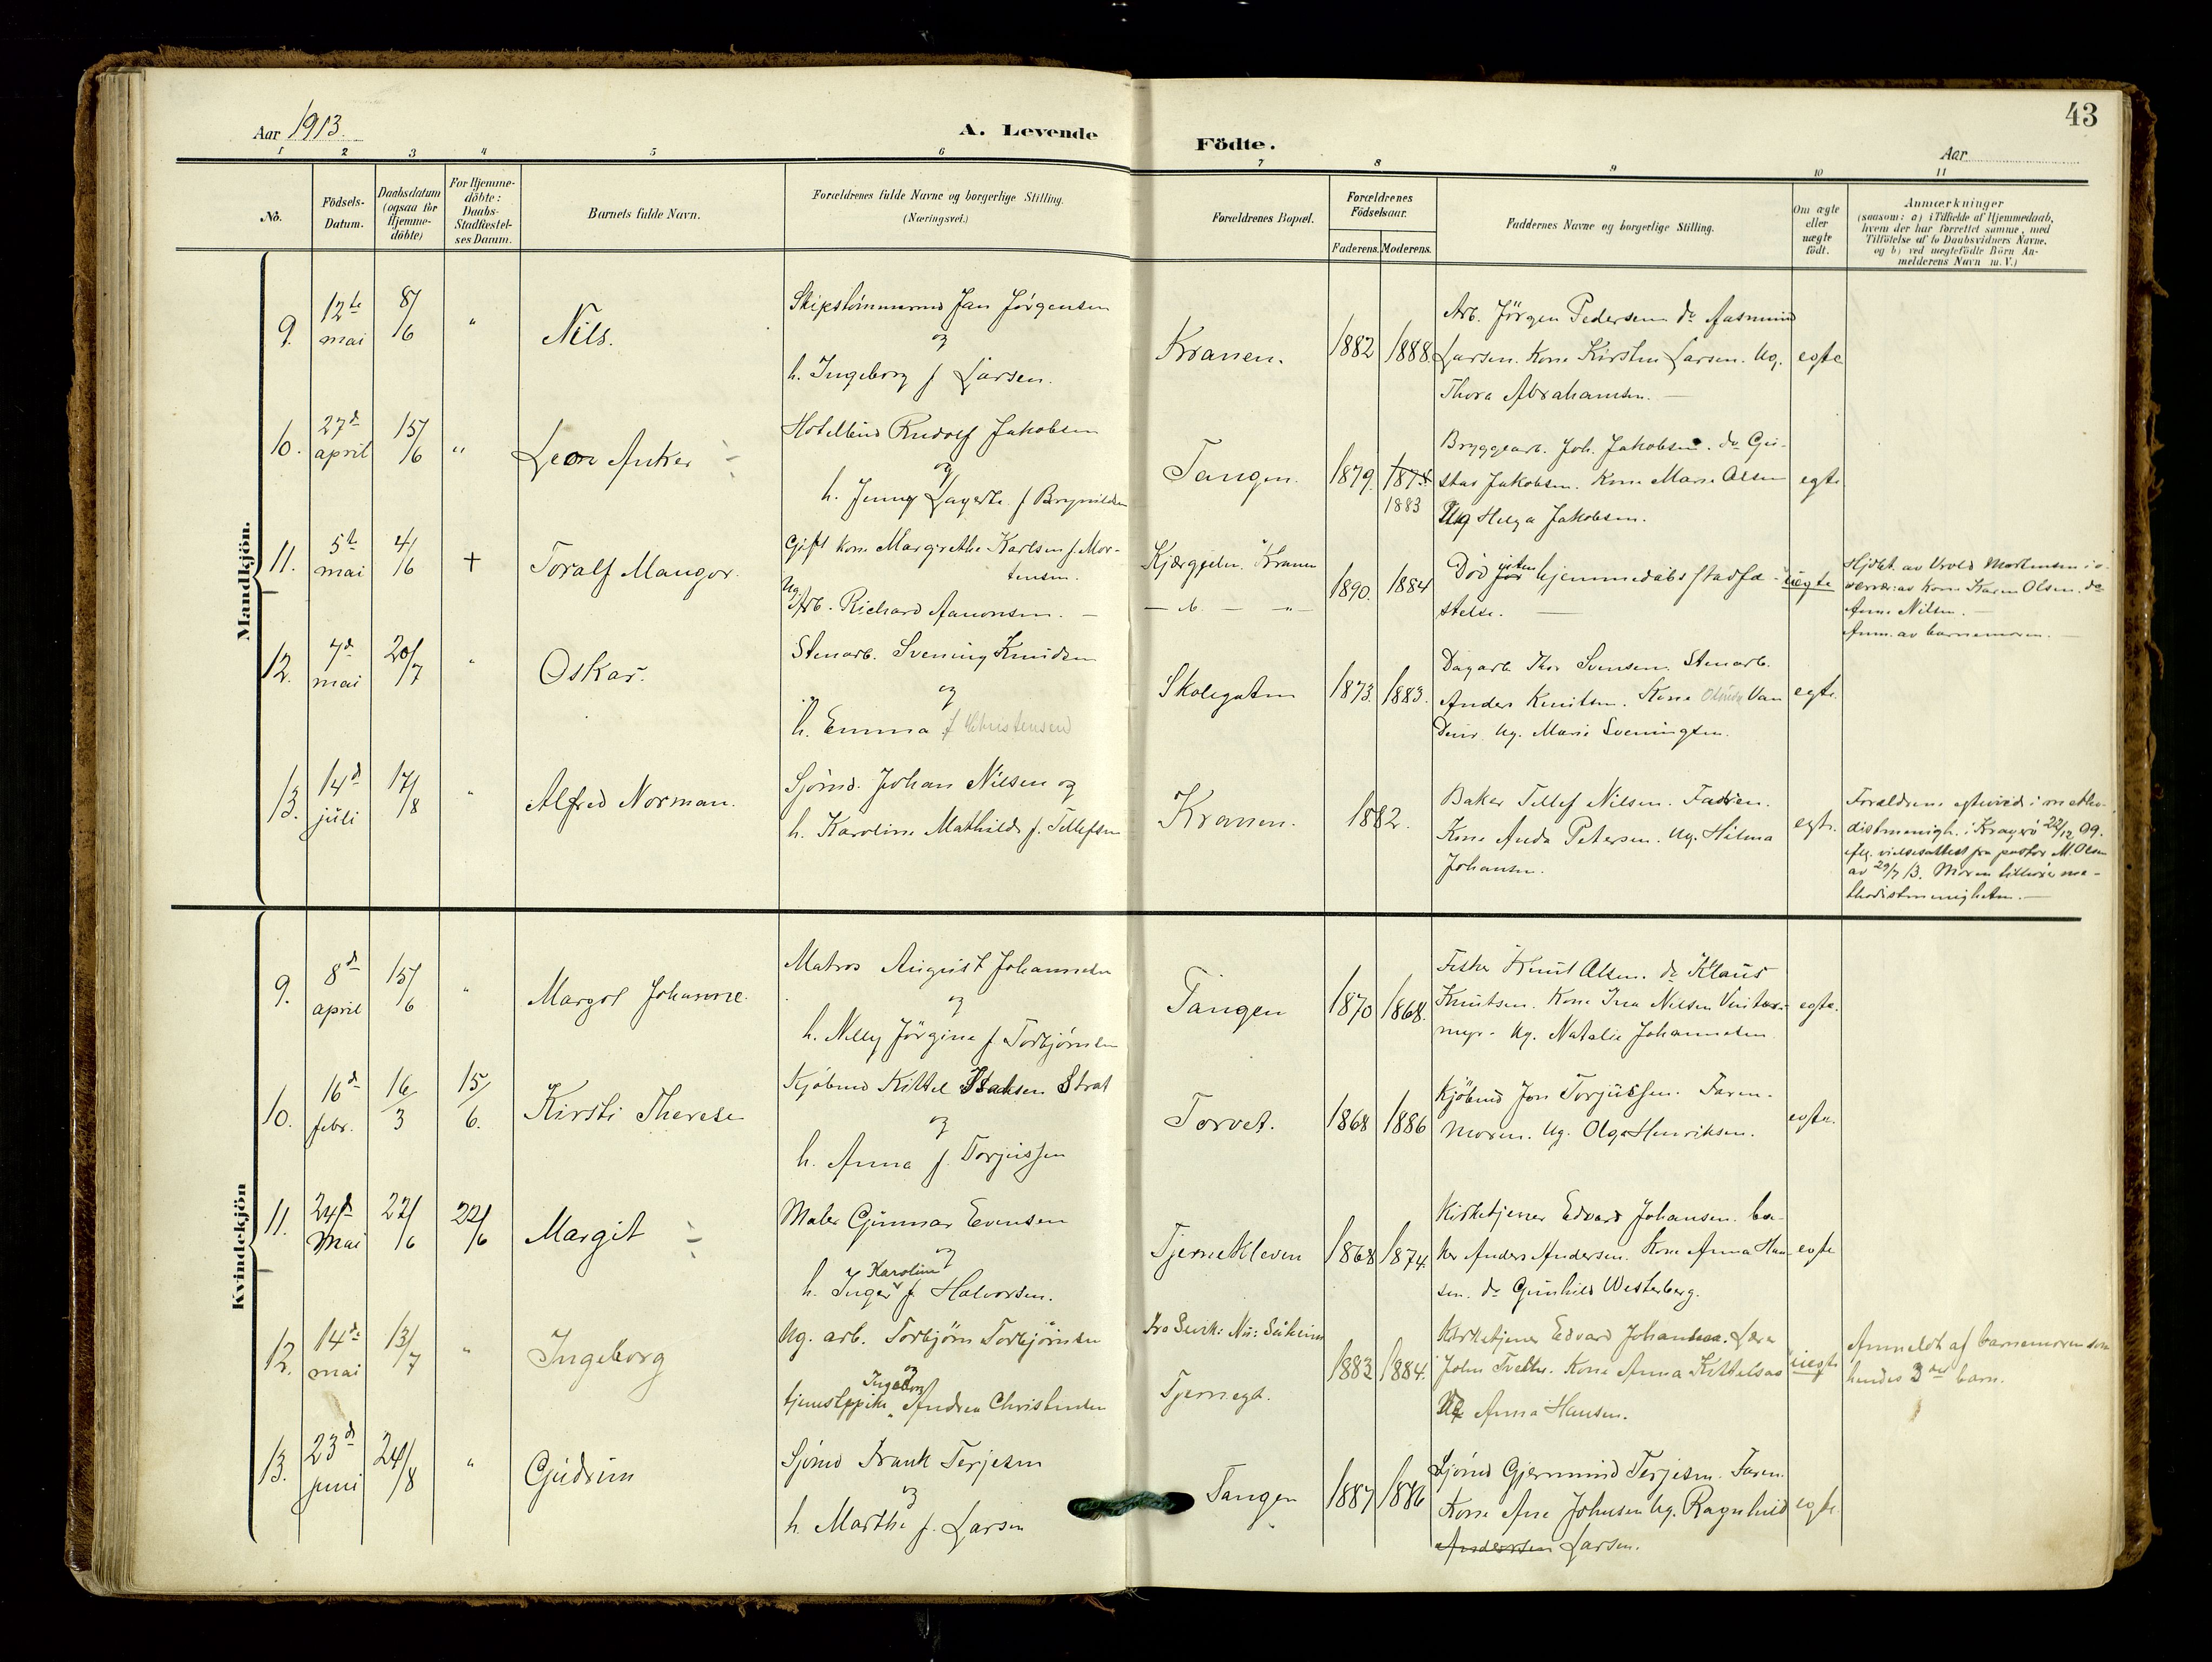 43
Aar 1913.
A. Levende Födte.
Aar
1 2 3 4 5 6 7 8 9 10 11
No.
Födsels-
Datum.
Daabsdatum
(ogsaa for
Hjemme-
döbte)
For Hjemme-
döbte:
Daabs-
Stadfæstel-
ses Datum.
Barnets fulde Navn.
Forældrenes fulde Navne og borgerlige Stilling.
(Næringsvei.)
Forældrenes Bopæl.
Forældrenes
Födselsaar.
Faderens. Moderens.
Faddernes Navne og borgerlige Stilling.
Om ægte
eller
uægte
födt.
Anmærkninger
(saasom: a) i Tilfælde af Hjemmedaab,
hvem der har forrettet samme, med
Tilföielse af to Daabsvidners Navne,
og b) ved uægtefödte Börn An-
melderens Navn m. V.)
Mandkjön.
9.
12te
mai
8/6
"
Nils.
Skipstömmermd Jan Jörgensen
og
h. Ingeborg f Larsen.
Kranen.
1882
1888
Arb. Jörgen Pedersen do Aasmund
Larsen. Kone Kirsten Larsen. Ug.
Thora Abrahamsen.
egte
10.
27d
april
15/6
"
Leon Anker
Hotelbud Rudolf Jakobsen
og
h. Jenny Lagerta f Brynildsen
Tangen.
1879.
1874
1883
Bryggearb. Joh. Jakobsen. do Gu-
stav Jakobsen. Kone Marie Olsen
Ug Helga Jakobsen.
egte
11.
5te
mai
4/6
+
Toralf Mangor.
Gift kone Margrethe Karlsen f. Mor-
tensen.
Ug. Arb. Richard Aanonsen.
Kjærggeln. Kranen
— " — "
1890.
1884
Död uten hjemmedåbs stadfæ-
stelse.
uegte
Hjdbt. av Urvold Mortensen i o-
vervær: av Kone Karen Olsen. do
Anne Nilsen.
Anm. av barnemoren.
12.
7d
mai
20/7
"
Oskar.
Stenarb. Svening Knudsen
og
h. Emma f Christensen
Skolegaten
1873.
1883.
Dagarb Thor Svensen. Stenarb.
Anders Knutsen. Kone Van
Ug. Marie Sveningsen.
egte.
13.
14d
juli
17/8
"
Alfred Norman.
Sjömd. Johan Nilsen og
h. Karoline Mathilde f. Tellefsen
Kranen.
1882.
Baker Tellef Nilsen. Faderen.
Kone Anda Petersen. Ug. Hilma
Johansen.
egte.
Forældrene egteviede i metho-
distmenigh. i Kragerö 22/12 09.
iflg. vielsesattest fra pastor M. Olsen
av 29/7 13. Moren tilhörer me-
thodistmenigheten.
Kvindekjön
9.
8d
april
15/6
"
Margot Johanne.
Matros August Johannesen
og
h. Nelly Jörgine f Torbjörnsen
Tangen
1870
1868.
Fisker Knut Olsen. do Klaus
Knutsen. Kone Ina Nilsen Vinter-
myr. Ug. Natalie Johannesen
egte.
10.
16d
febr.
16/3
15/6.
Kirsti Therese
Kjöbmd Kittel Isaksen Strat
og
h. Anna f. Torjussen
Torvet.
1868
1886
Kjöbmd Jon Torjussen. Faren.
Moren. Ug. Olga Henriksen.
egte.
11.
24d
mai
22/6
22/6
Margit
Maler Gunnar Evensen
og
Karoline
h. Inger f. Halvorsen.
Tjernekleven
1868
1874.
Kirketjener Edvard Johansen. ba-
ker Anders Andersen. Kone Anna Han-
sen. do Gunhild Westerberg.
egte
12.
14de
mai
13/7
"
Ingeborg
Ug. arb. Torbjörn Torbjörnsen
og
Ingeborg
tjenestepike Andrea Christensen
Tjernegt.
1883
1884.
Kirketjener Edvard Johansen. Lære
John Tvethe. Kone Anna Kittelsen
Ug Anna Hansen.
uegte
Anmeldt af barnemoren som
hendes 3die barn.
13.
23d
juni
24/8
"
Gudrun
Sjömd Frank Terjesen
og
h. Marthe f. Larsen
Tangen
1887
1886
Sjömd Gjermund Terjesen. Faren.
Kone Ane Johnsen Ug. Ragnhild
Andersen Larsen.
egte.